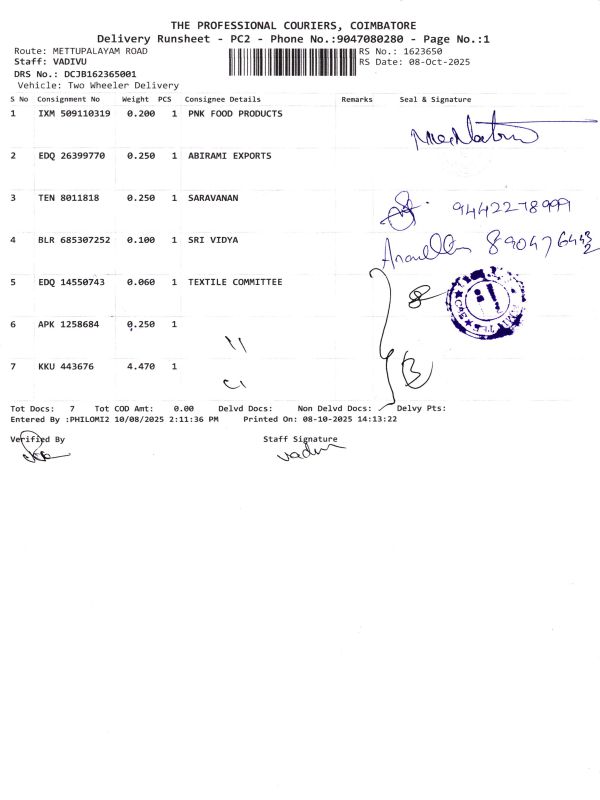 THE PROFESSIONAL COURIERS, COIMBATORE
Delivery Runsheet - PC2 - Phone No.:9047080280 - Page No.:1
Route: METTUPALAYAM ROAD RS No.: 1623650
Staff: VADIVU RS Date: 08-Oct-2025
DRS No.: DCJB162365001
Vehicle: Two Wheeler Delivery
S No Consignment No Weight PCS Consignee Details Remarks Seal & Signature
1 IXM 509110319 0.200 1 PNK FOOD PRODUCTS
2 EDQ 26399770 0.250 1 ABIRAMI EXPORTS
3 TEN 8011818 0.250 1 SARAVANAN 9442278999
4 BLR 685307252 0.100 1 SRI VIDYA
5 EDQ 14550743 0.060 1 TEXTILE COMMITTEE
6 APK 1258684 0.250 1
7 KKU 443676 4.470 1
Tot Docs: 7 Tot COD Amt: 0.00 Delvd Docs: Non Delvd Docs: Delvy Pts:
Entered By :PHILOMI2 10/08/2025 2:11:36 PM Printed On: 08-10-2025 14:13:22
Verified By Staff Signature